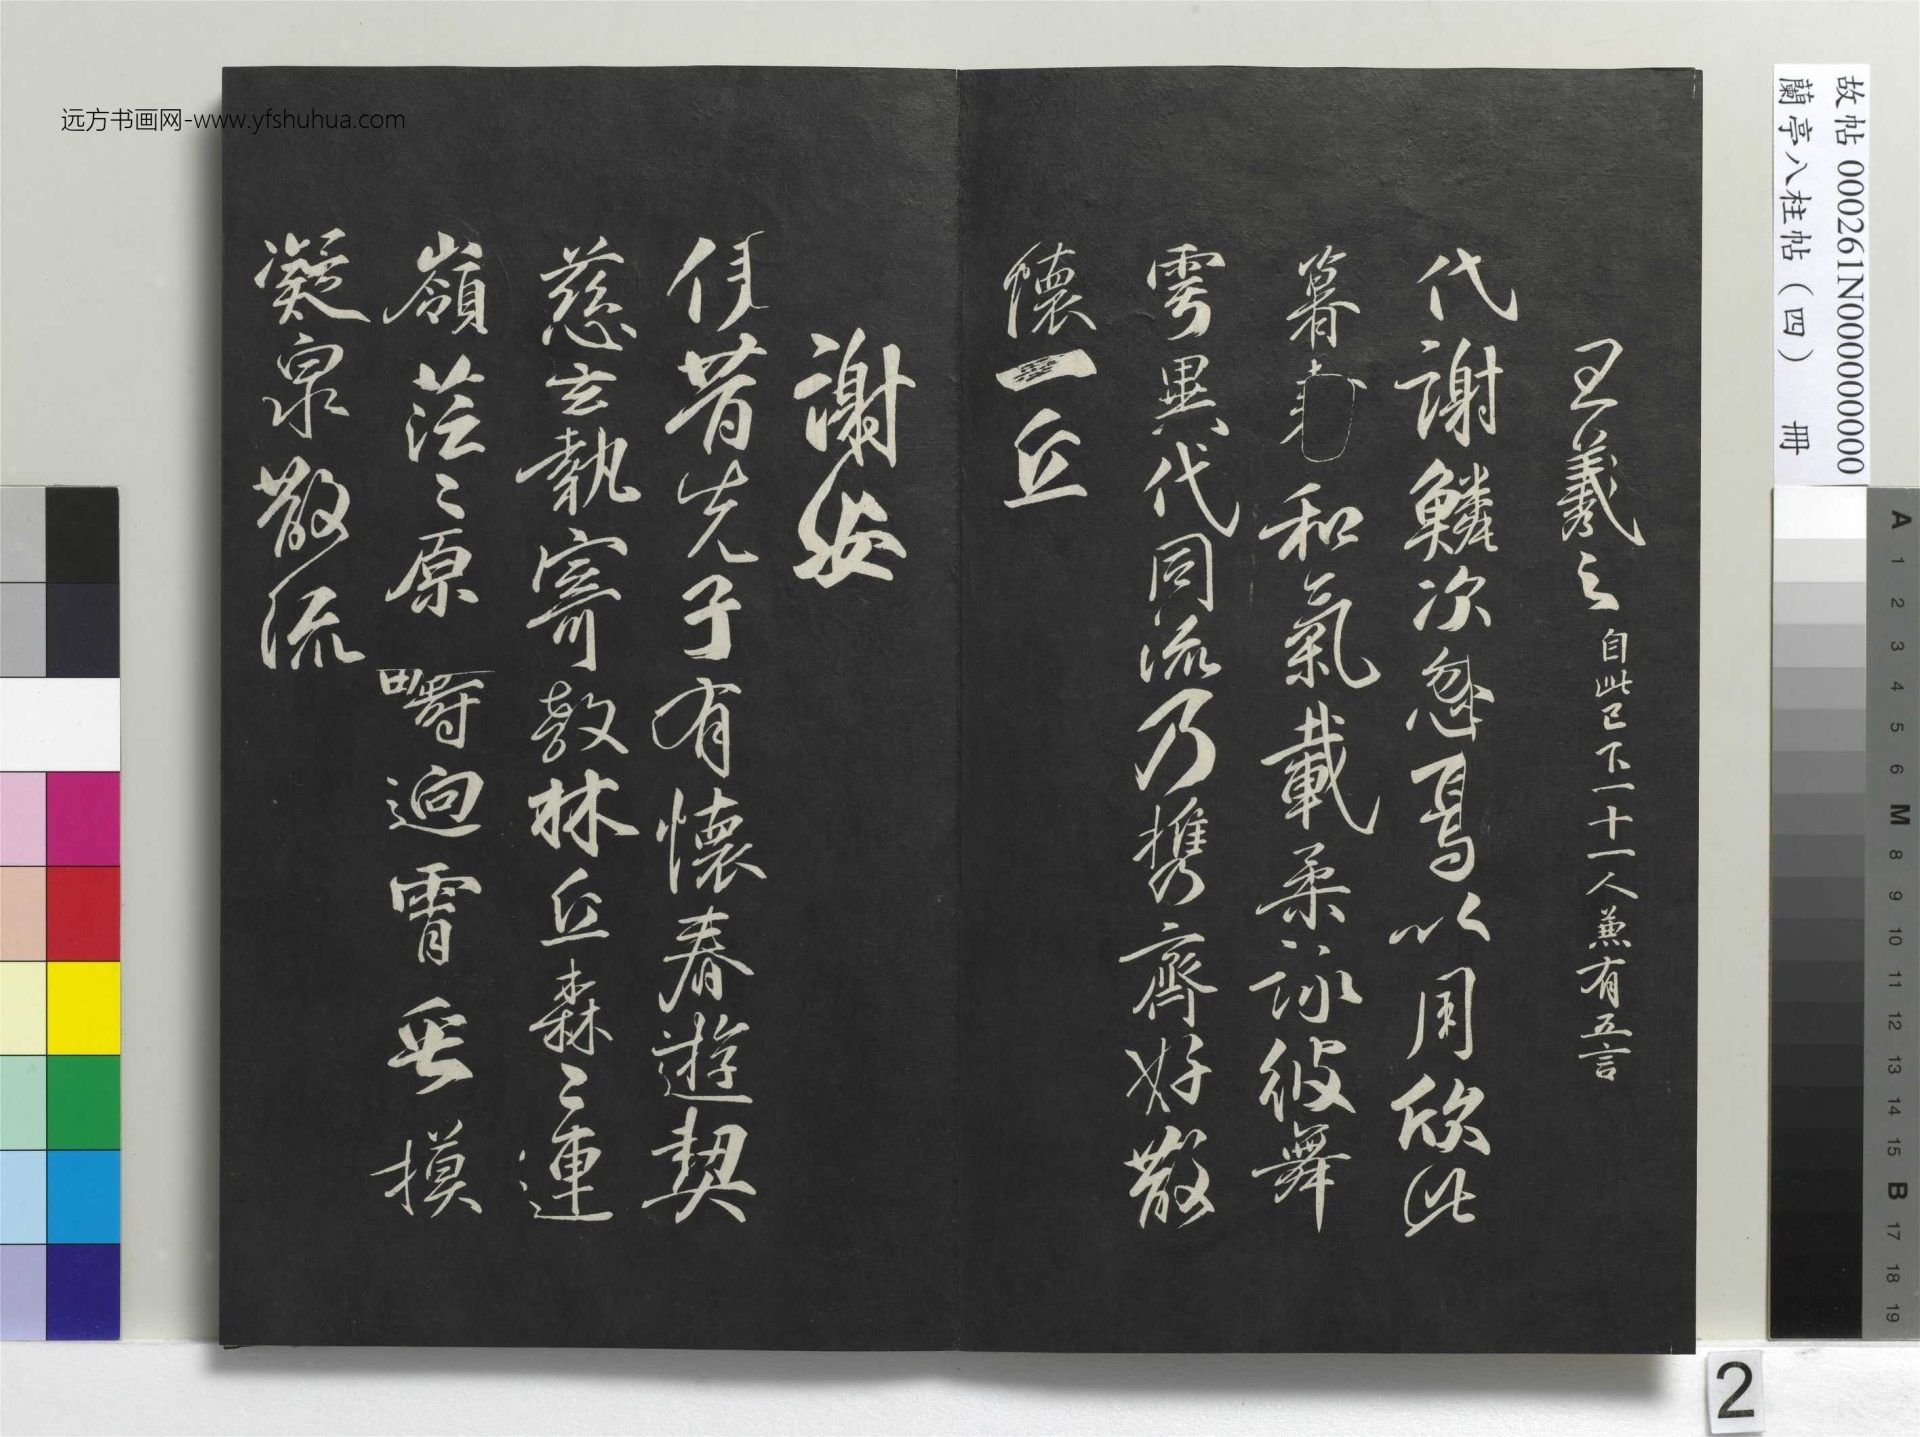 远方书画网-www.yfshuhua.com
故帖 000261N000000000
蘭亭八柱帖（四） 冊
王羲之 自此已下一十一人兼有五言
代謝鱗次忽焉以周欣此
暮春 和氣載柔詠彼舞
雩異代同流乃携齊好散
懷一丘
謝安
伊昔先子有懷春遊契
慈玄執寄敖林丘森〻連
嶺茫〻原疇迥霄垂
凝泉散流
A 1 2 3 4 5 6 M 8 9 10 11 12 13 14 15 B 17 18 19
2